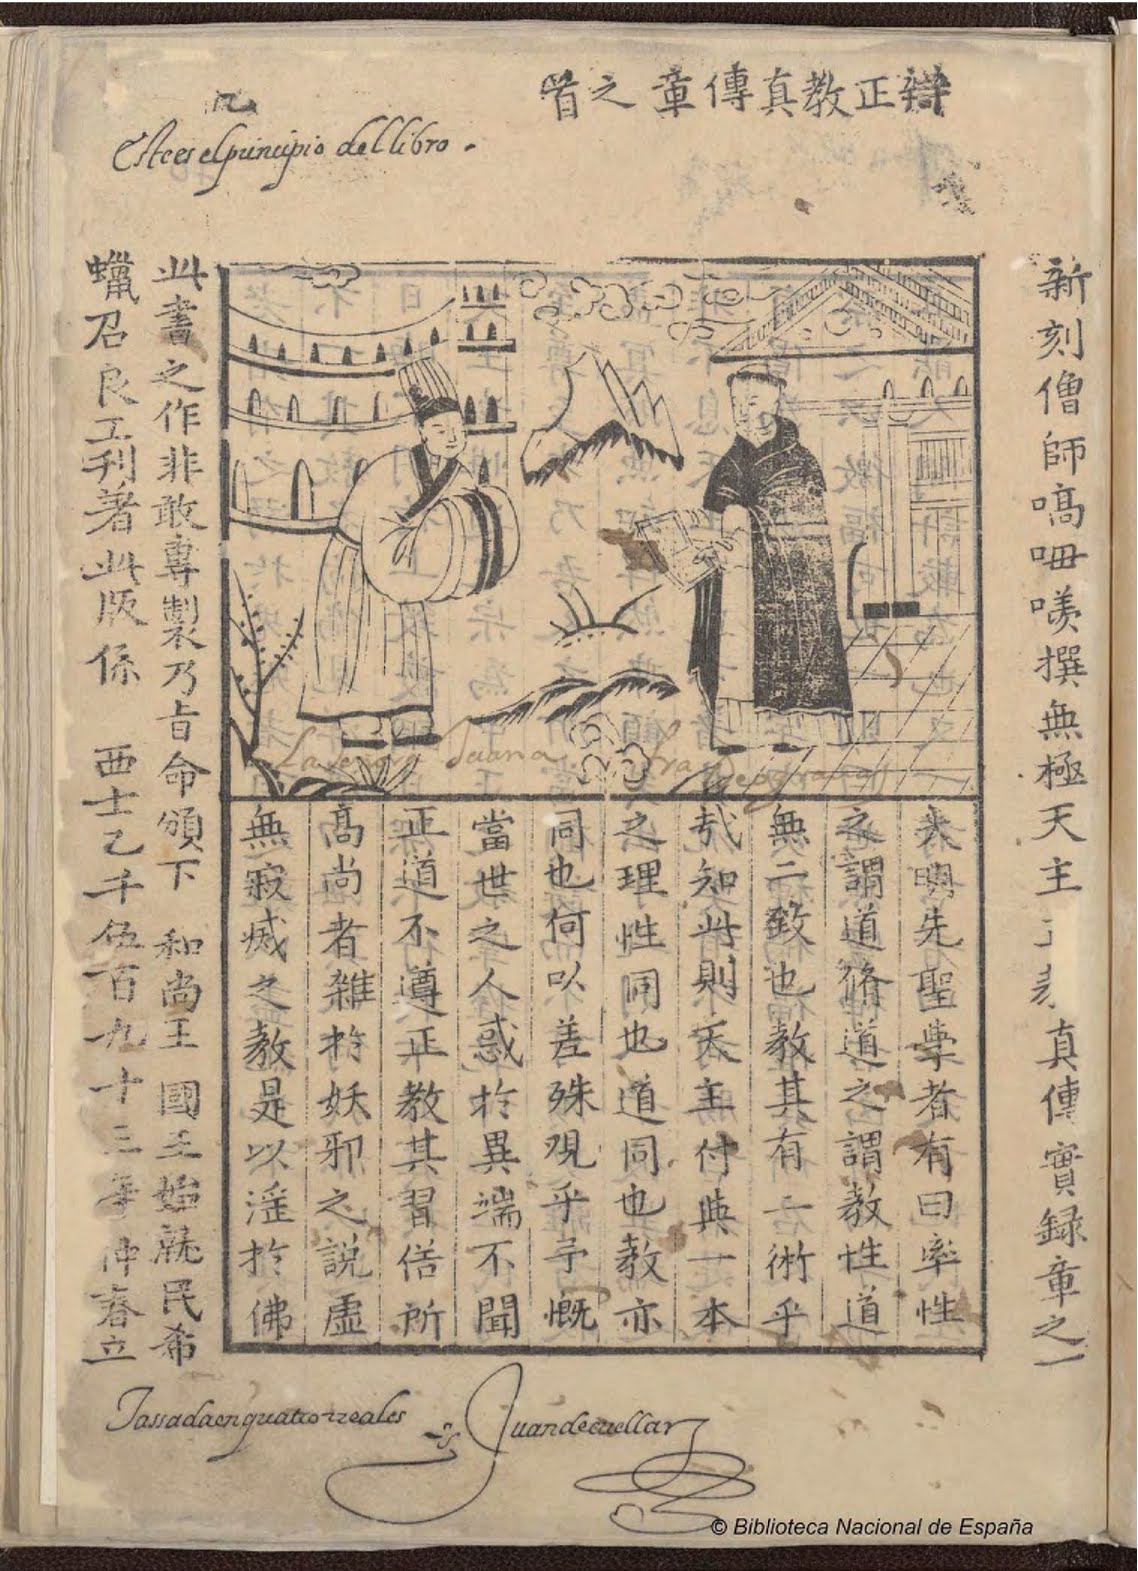 辯正教真傳章之首
Este es el principio del libro.
新刻僧師嗃呣𠸄撰無極天主 真傳實録章之一
大明先聖學者有曰率性
之謂道脩道之謂教性道
無二致也教其有二術乎
㢤知此則天主付與一本
之理性同也道同也教亦
同也何以差殊观乎予慨
當世之人惑扵異端不聞
正道不遵正教其習俗所
髙尚者雜扵妖邪之說虚
無寂滅之教是以淫扵佛
此書之作非敢專製乃旨命頒下 和尚王 國王始就民希
蠟召良工刊著此版係 西士乙千伍百九十三年仲春立
Tassada en quatro rreales
Juan de cuellar
© Biblioteca Nacional de España